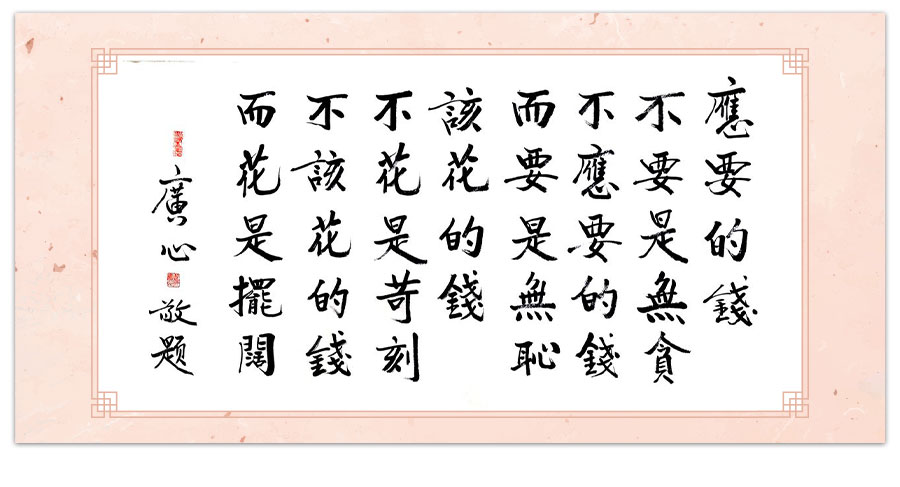 應要的錢
不要是無貪
不應要的錢
而要是無恥
該花的錢
不花是苛刻
不該花的錢
而花是擺闊
廣心敬題